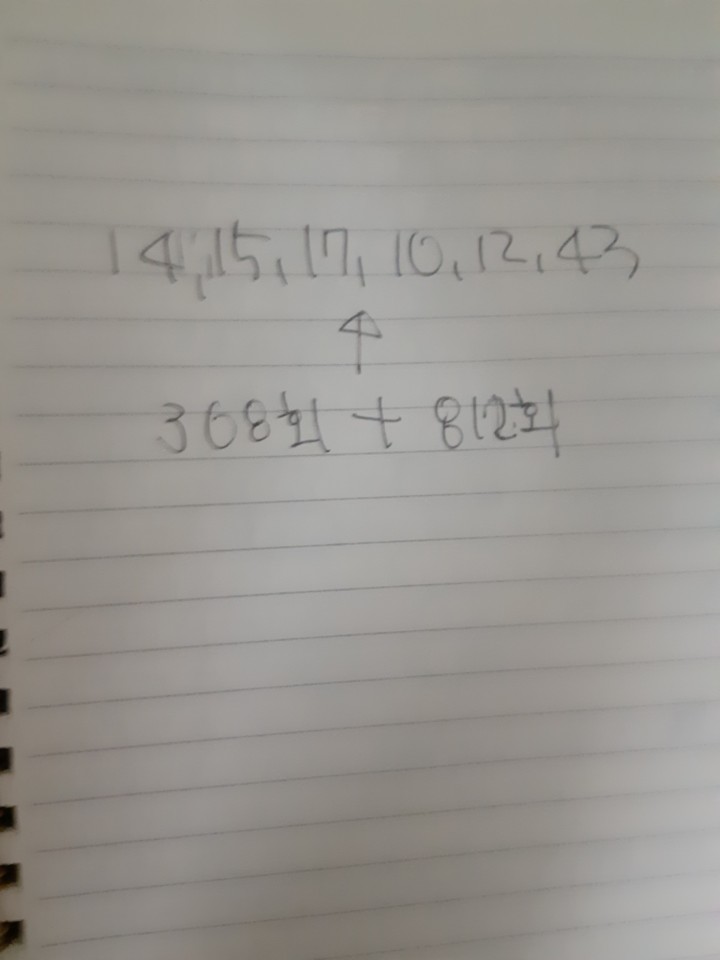 14, 15, 17, 10, 12, 43
↑
368회 + 812회